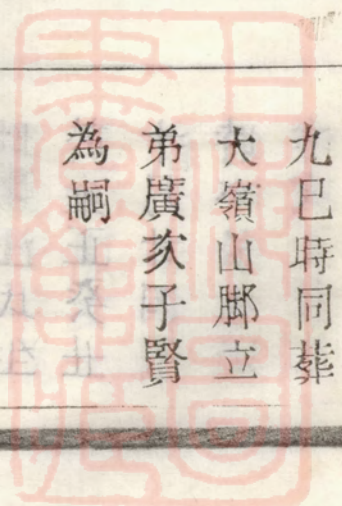 九巳時同葬
大嶺山脚立
弟廣亥子賢
為嗣